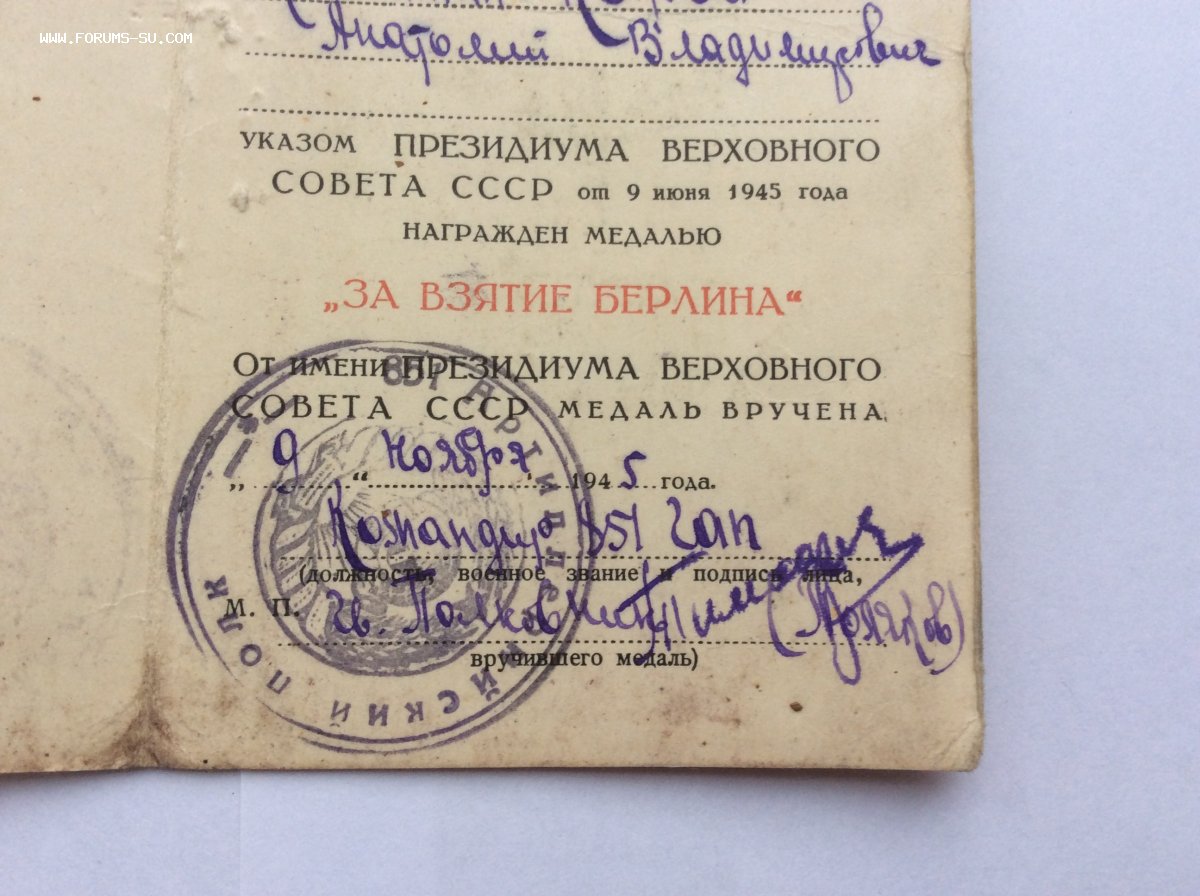 WWW.FORUMS-SU.COM
Анатолий Владимирович
УКАЗОМ ПРЕЗИДИУМА ВЕРХОВНОГО
СОВЕТА СССР от 9 июня 1945 года
НАГРАЖДЕН МЕДАЛЬЮ
„ЗА ВЗЯТИЕ БЕРЛИНА“
От имени ПРЕЗИДИУМА ВЕРХОВНОГО
СОВЕТА СССР МЕДАЛЬ ВРУЧЕНА
„ 9 “ ноября 1945 года.
Командир 851 гап
(должность, военное звание и подпись лица,
М. П. гв. Полковник
вручившего медаль)
851 АРТИЛЛЕРИЙСКИЙ ПОЛК